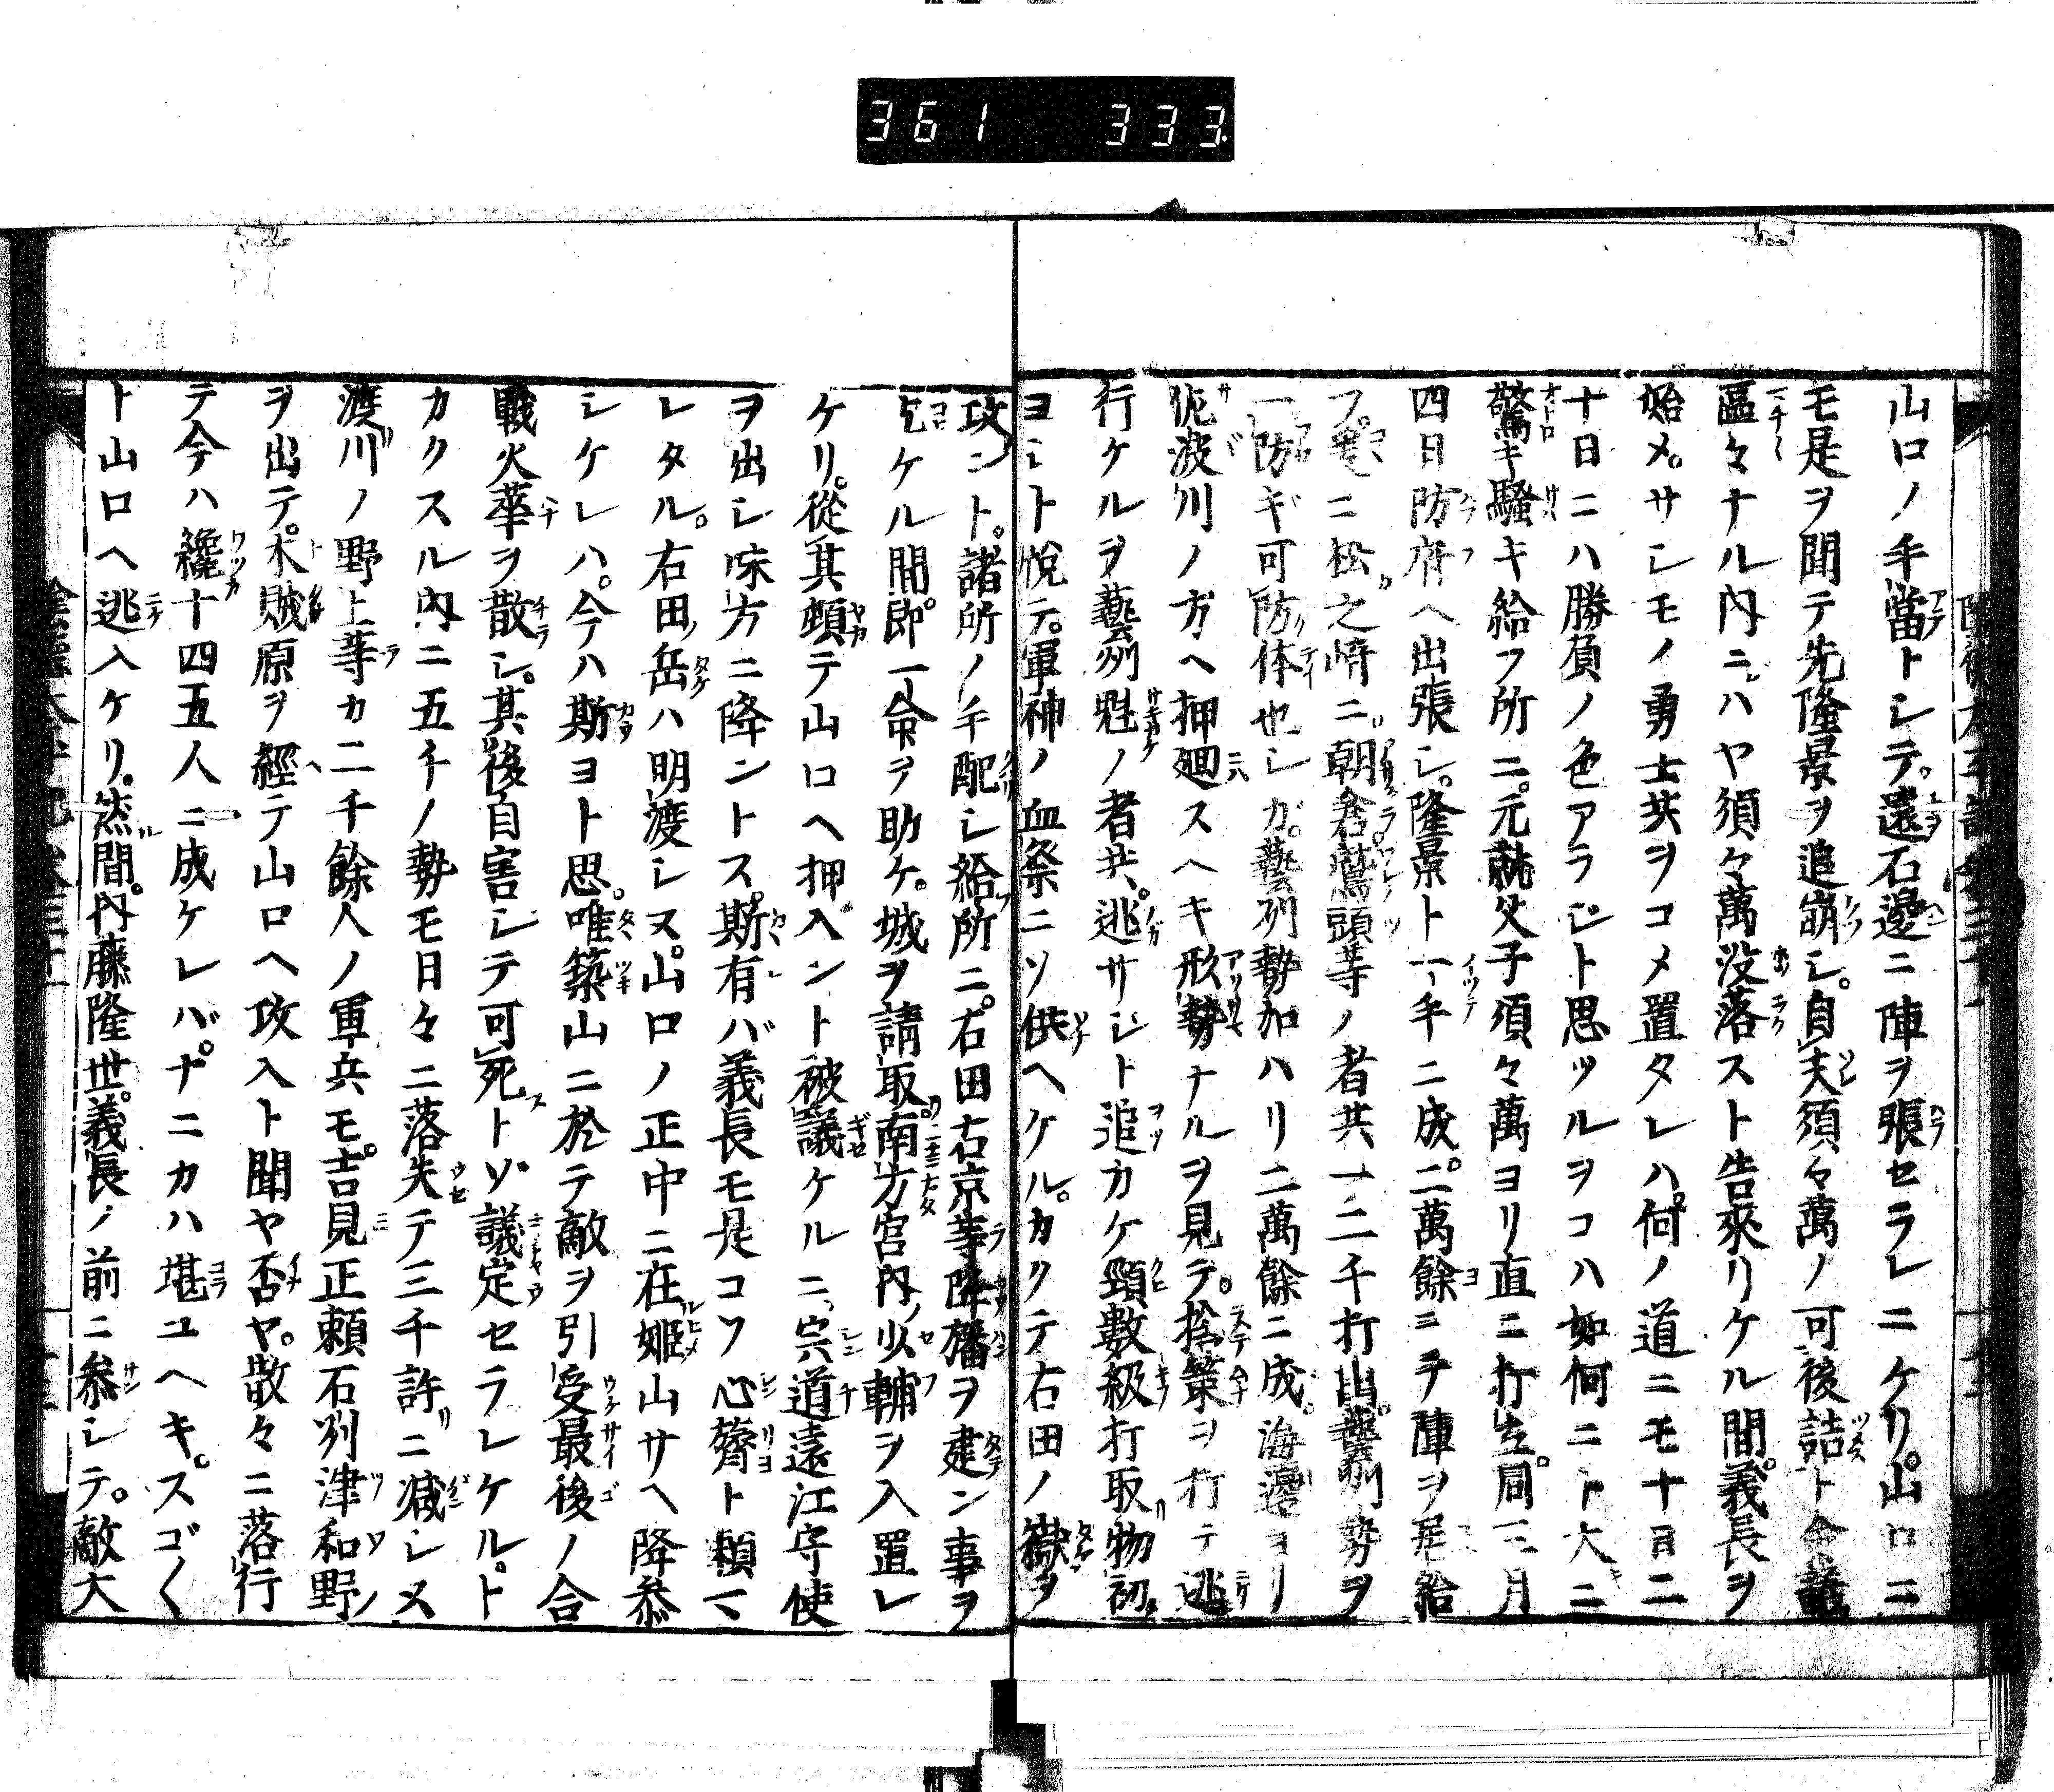 361 333
山口ノ手當トシテ。遠石邊ニ陣ヲ張セラレニケリ。山口ニ
モ是ヲ聞テ先隆景ヲ追崩シ。自夫須々萬ノ可後詰ト僉議
區々ナル内ニ。ハヤ須々萬没落スト告來リケル間。義長ヲ
始メ。サシモノ勇士共ヲコメ置タレハ。何ノ道ニモ十日二
十日ニハ勝負ノ色アラジト思ツルヲコハ如何ニト大ニ
驚キ騒キ給フ所ニ。元就父子須々萬ヨリ直ニ打出。同三月
四日防府ヘ出張シ。隆景ト一手ニ成。二萬餘ニテ陣ヲ居給
フ。爰ニ松之崎ニ。朝倉鷲頭等ノ者共一二千打出。藝州勢ヲ
一防ギ可防体也シガ。藝州勢加ハリ二萬餘ニ成。海邊ヨリ
佐波川ノ方ヘ押廻スヘキ形勢ナルヲ見テ。捨策ヲ打テ逃
行ケルヲ藝州魁ノ者共。逃サジト追カケ頸數級打取物初
ヨシト悦テ。軍神ノ血祭ニソ供ヘケル。カクテ右田ノ嶽ヲ
攻ント。諸所ノ手配シ給所ニ。右田右京等降旛ヲ建ン事ヲ
乞ケル間。即一命ヲ助ケ。城ヲ請取。南方宮内少輔ヲ入置レ
ケリ。從其頓テ山口ヘ押入ント被議ケルニ、宍道遠江守使
ヲ出シ味方ニ降ントス。斯有バ義長モ是コソ心膂ト頼マ
レタル。右田岳ハ明渡シヌ。山口ノ正中ニ在姫山サヘ降参
シケレハ。今ハ斯ヨト思。唯築山ニ於テ敵ヲ引受最後ノ合
戰火華ヲ散シ。其後自害シテ可死トゾ議定セラレケル。ト
カクスル内ニ五千ノ勢モ日々ニ落失テ三千許ニ減シヌ
渡川ノ野上等カ二千餘人ノ軍兵モ。吉見正頼石州津和野
ヲ出テ。木賊原ヲ經テ山口ヘ攻入ト聞ヤ否ヤ。散々ニ落行
テ今ハ纔十四五人ニ成ケレバ。ナニカハ堪ユヘキ。スゴ〱
ト山口ヘ逃入ケリ。然間。内藤隆世。義長ノ前ニ参シテ。敵大